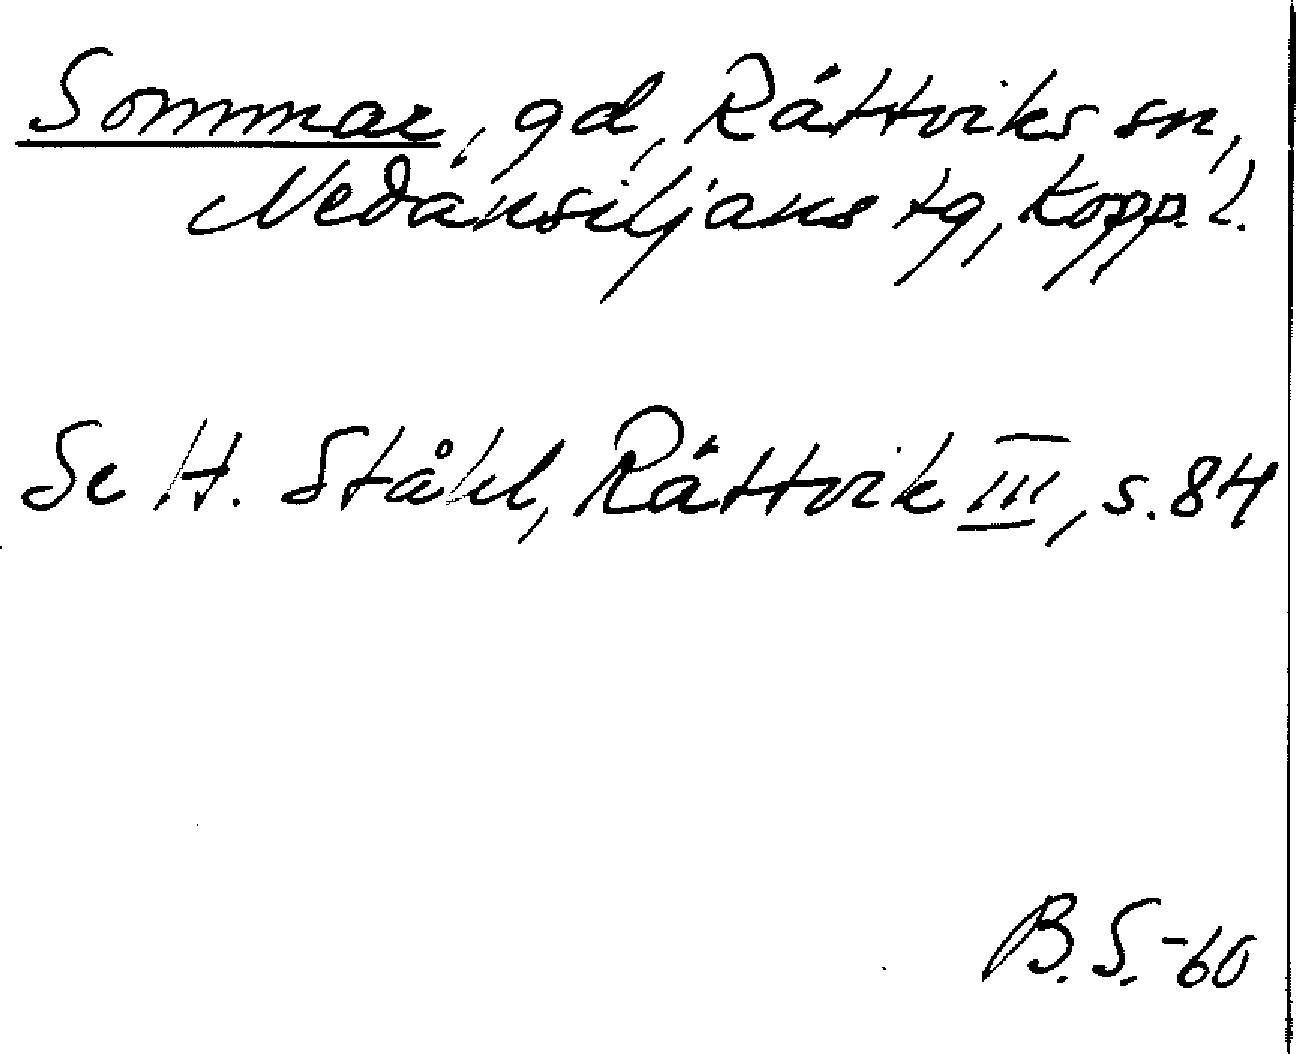 Sommar, gd, Rättviks sn,
Nedansiljans tg, Kopp. l.
Se H. Ståhl, Rättvik III, s. 84
B. S. -60